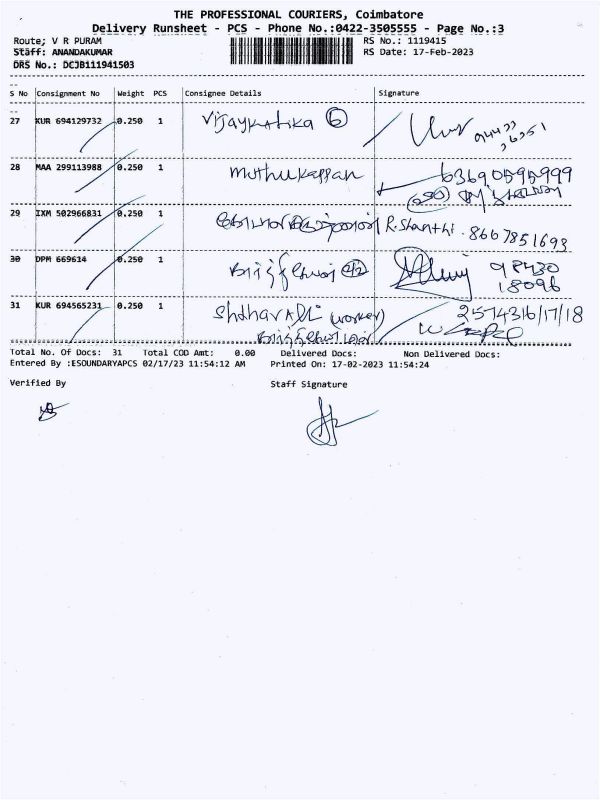 THE PROFESSIONAL COURIERS, Coimbatore
Delivery Runsheet - PCS - Phone No.:0422-3505555 - Page No.:3
Route; V R PURAM
RS No.: 1119415
Staff: ANANDAKUMAR
RS Date: 17-Feb-2023
DRS No.: DCJB111941503
S No Consignment No Weight PCS Consignee Details Signature
27 KUR 694129732 0.250 1 Vijaykathika 6
28 MAA 299113988 0.250 1 muthukappan
29 IXM 502966831 0.250 1 R.Shanthi. 8667851693
30 DPM 669614 0.250 1 98430
18096
31 KUR 694565231 0.250 1 (worker) 2574316/17/18
Total No. Of Docs: 31 Total COD Amt: 0.00 Delivered Docs: Non Delivered Docs:
Entered By :ESOUNDARYAPCS 02/17/23 11:54:12 AM Printed On: 17-02-2023 11:54:24
Verified By Staff Signature